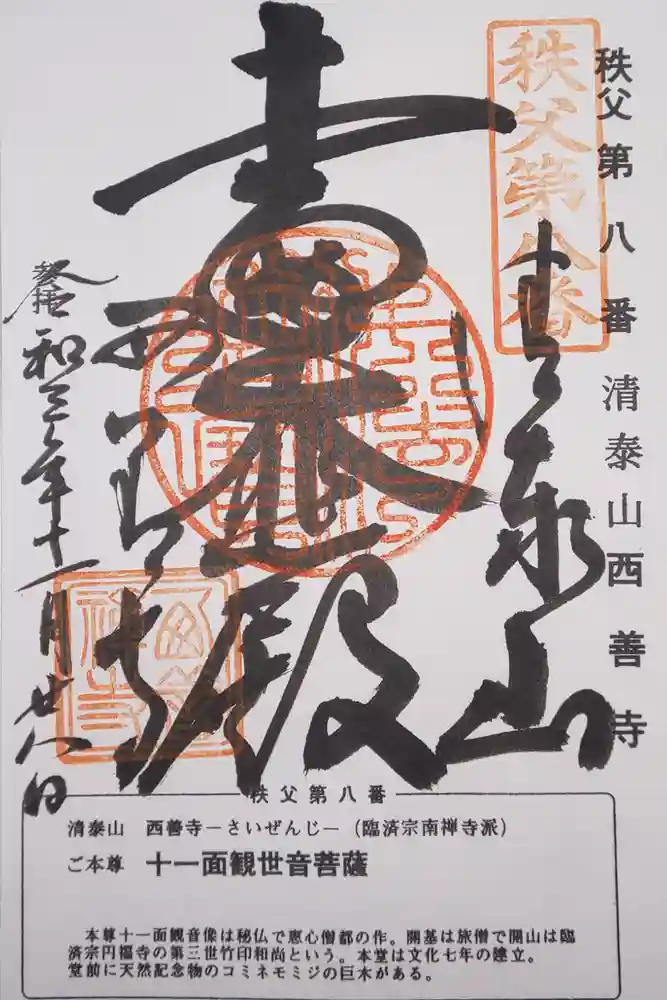 秩父第八番 清泰山西善寺
秩父第八番
清泰山
大悲殿
西善寺
奉拝
令和三年十一月廿八日
西善寺
秩父第八番
清泰山 西善寺―さいぜんじ―(臨済宗南禅寺派)
ご本尊 十一面観世音菩薩
本尊十一面観音像は秘仏で恵心僧都の作。開基は旅僧で開山は臨
済宗円福寺の第三世竹印和尚という。本堂は文化七年の建立。
堂前に天然記念物のコミネモミジの巨木がある。